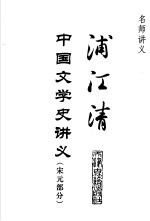 名师讲义
浦江清
中国文学史讲义
(宋元部分)